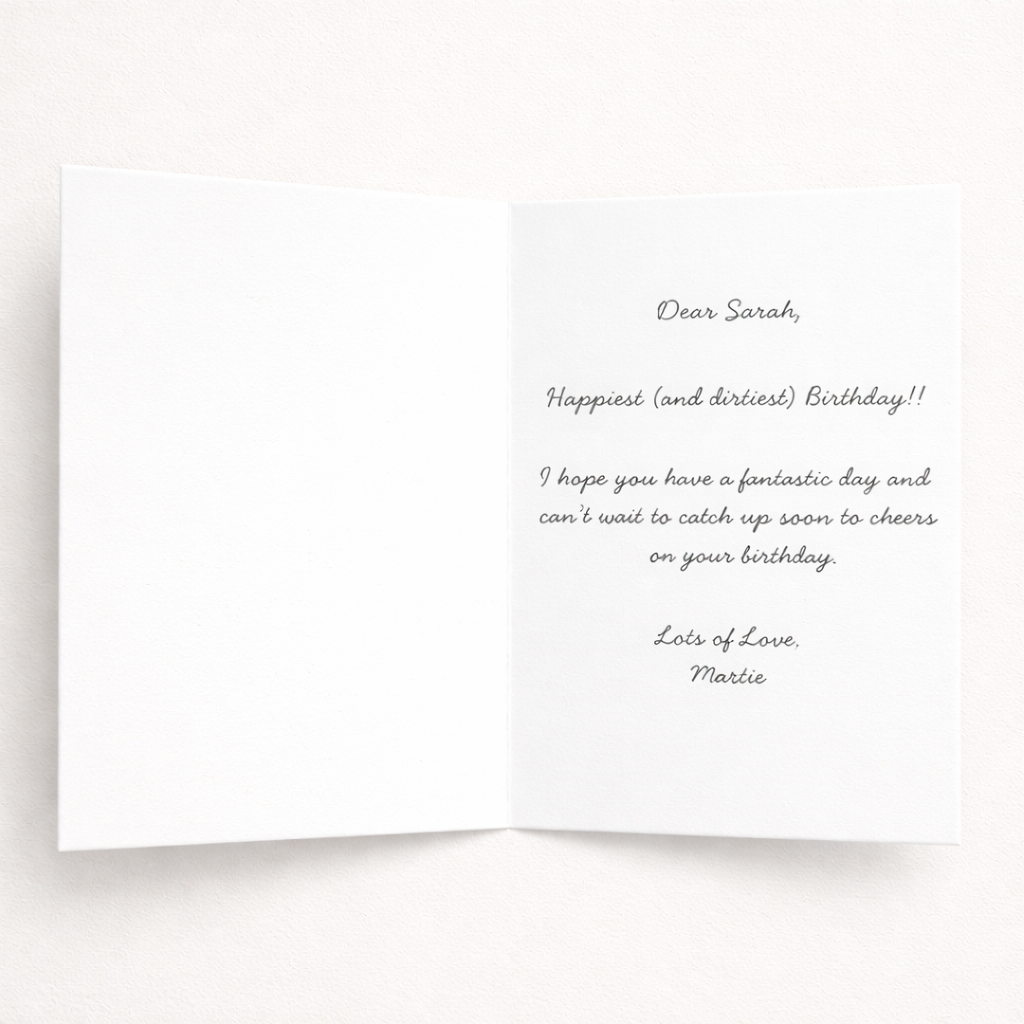 Dear Sarah,
Happiest (and dirtiest) Birthday!!
I hope you have a fantastic day and
can't wait to catch up soon to cheers
on your birthday.
Lots of Love,
Martie